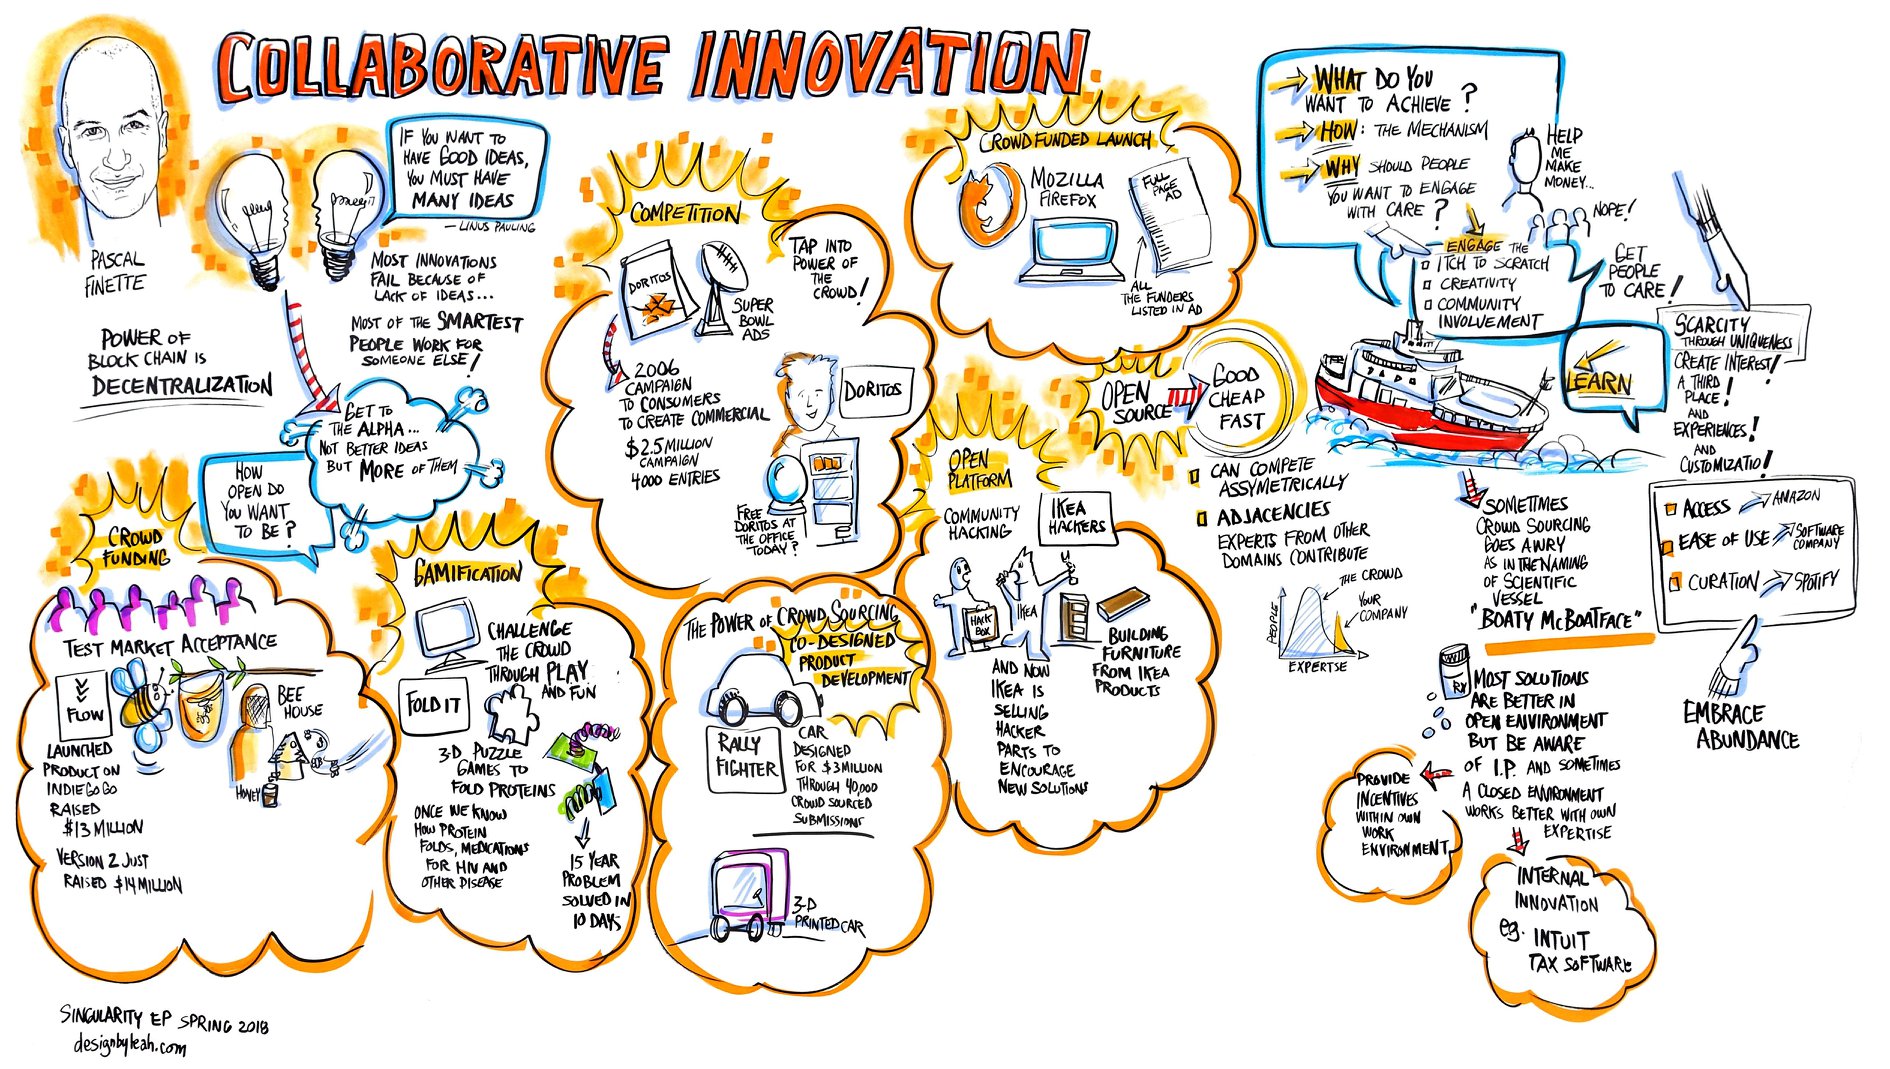 COLLABORATIVE INNOVATION
PASCAL
FINETTE
POWER OF
BLOCK CHAIN IS
DECENTRALIZATION
IF YOU WANT TO
HAVE GOOD IDEAS,
YOU MUST HAVE
MANY IDEAS
— LINUS PAULING
MOST INNOVATIONS
FAIL BECAUSE OF
LACK OF IDEAS...
MOST OF THE SMARTEST
PEOPLE WORK FOR
SOMEONE ELSE!
GET TO
THE ALPHA...
NOT BETTER IDEAS
BUT MORE OF THEM
HOW
OPEN DO
YOU WANT
TO BE?
CROWD
FUNDING
TEST MARKET ACCEPTANCE
FLOW
BEE
HOUSE
HONEY
LAUNCHED
PRODUCT ON
INDIEGOGO
RAISED
$13 MILLION
VERSION 2 JUST
RAISED $14 MILLION
GAMIFICATION
CHALLENGE
THE CROWD
THROUGH PLAY
AND FUN
FOLD IT
3-D PUZZLE
GAMES TO
FOLD PROTEINS
ONCE WE KNOW
HOW PROTEIN
FOLDS, MEDICATIONS
FOR HIV AND
OTHER DISEASE
15 YEAR
PROBLEM
SOLVED IN
10 DAYS
COMPETITION
TAP INTO
POWER OF
THE
CROWD!
DORITOS
SUPER
BOWL
ADS
2006
CAMPAIGN
TO CONSUMERS
TO CREATE COMMERCIAL
$2.5 MILLION
CAMPAIGN
4000 ENTRIES
DORITOS
FREE
DORITOS AT
THE OFFICE
TODAY?
THE POWER OF CROWD SOURCING
CO-DESIGNED
PRODUCT
DEVELOPMENT
RALLY
FIGHTER
CAR
DESIGNED
FOR $3 MILLION
THROUGH 40,000
CROWD SOURCED
SUBMISSIONS
3-D
PRINTED CAR
CROWD FUNDED LAUNCH
MOZILLA
FIREFOX
FULL
PAGE
AD
ALL
THE FUNDERS
LISTED IN AD
OPEN
PLATFORM
COMMUNITY
HACKING
IKEA
HACKERS
HACK
BOX
IKEA
BUILDING
FURNITURE
FROM IKEA
PRODUCTS
AND NOW
IKEA IS
SELLING
HACKER
PARTS TO
ENCOURAGE
NEW SOLUTIONS
OPEN
SOURCE
GOOD
CHEAP
FAST
CAN COMPETE
ASSYMETRICALLY
ADJACENCIES
EXPERTS FROM OTHER
DOMAINS CONTRIBUTE
THE CROWD
YOUR
COMPANY
PEOPLE
EXPERTISE
WHAT DO YOU
WANT TO ACHIEVE?
HOW: THE MECHANISM
WHY SHOULD PEOPLE
YOU WANT TO ENGAGE
WITH CARE?
HELP
ME
MAKE
MONEY...
NOPE!
ENGAGE THE
ITCH TO SCRATCH
CREATIVITY
COMMUNITY
INVOLVEMENT
GET
PEOPLE
TO CARE!
LEARN
SOMETIMES
CROWD SOURCING
GOES AWRY
AS IN THE NAMING
OF SCIENTIFIC
VESSEL
"BOATY McBOATFACE"
RX
MOST SOLUTIONS
ARE BETTER IN
OPEN ENVIRONMENT
BUT BE AWARE
OF I.P. AND SOMETIMES
A CLOSED ENVIRONMENT
WORKS BETTER WITH OWN
EXPERTISE
PROVIDE
INCENTIVES
WITHIN OWN
WORK
ENVIRONMENT
INTERNAL
INNOVATION
eg. INTUIT
TAX SOFTWARE
SCARCITY
THROUGH UNIQUENESS
CREATE INTEREST!
A THIRD
PLACE!
AND
EXPERIENCES!
AND
CUSTOMIZATIO!
ACCESS AMAZON
EASE OF USE SOFTWARE
COMPANY
CURATION SPOTIFY
EMBRACE
ABUNDANCE
SINGULARITY EP SPRING 2018
designbyleah.com